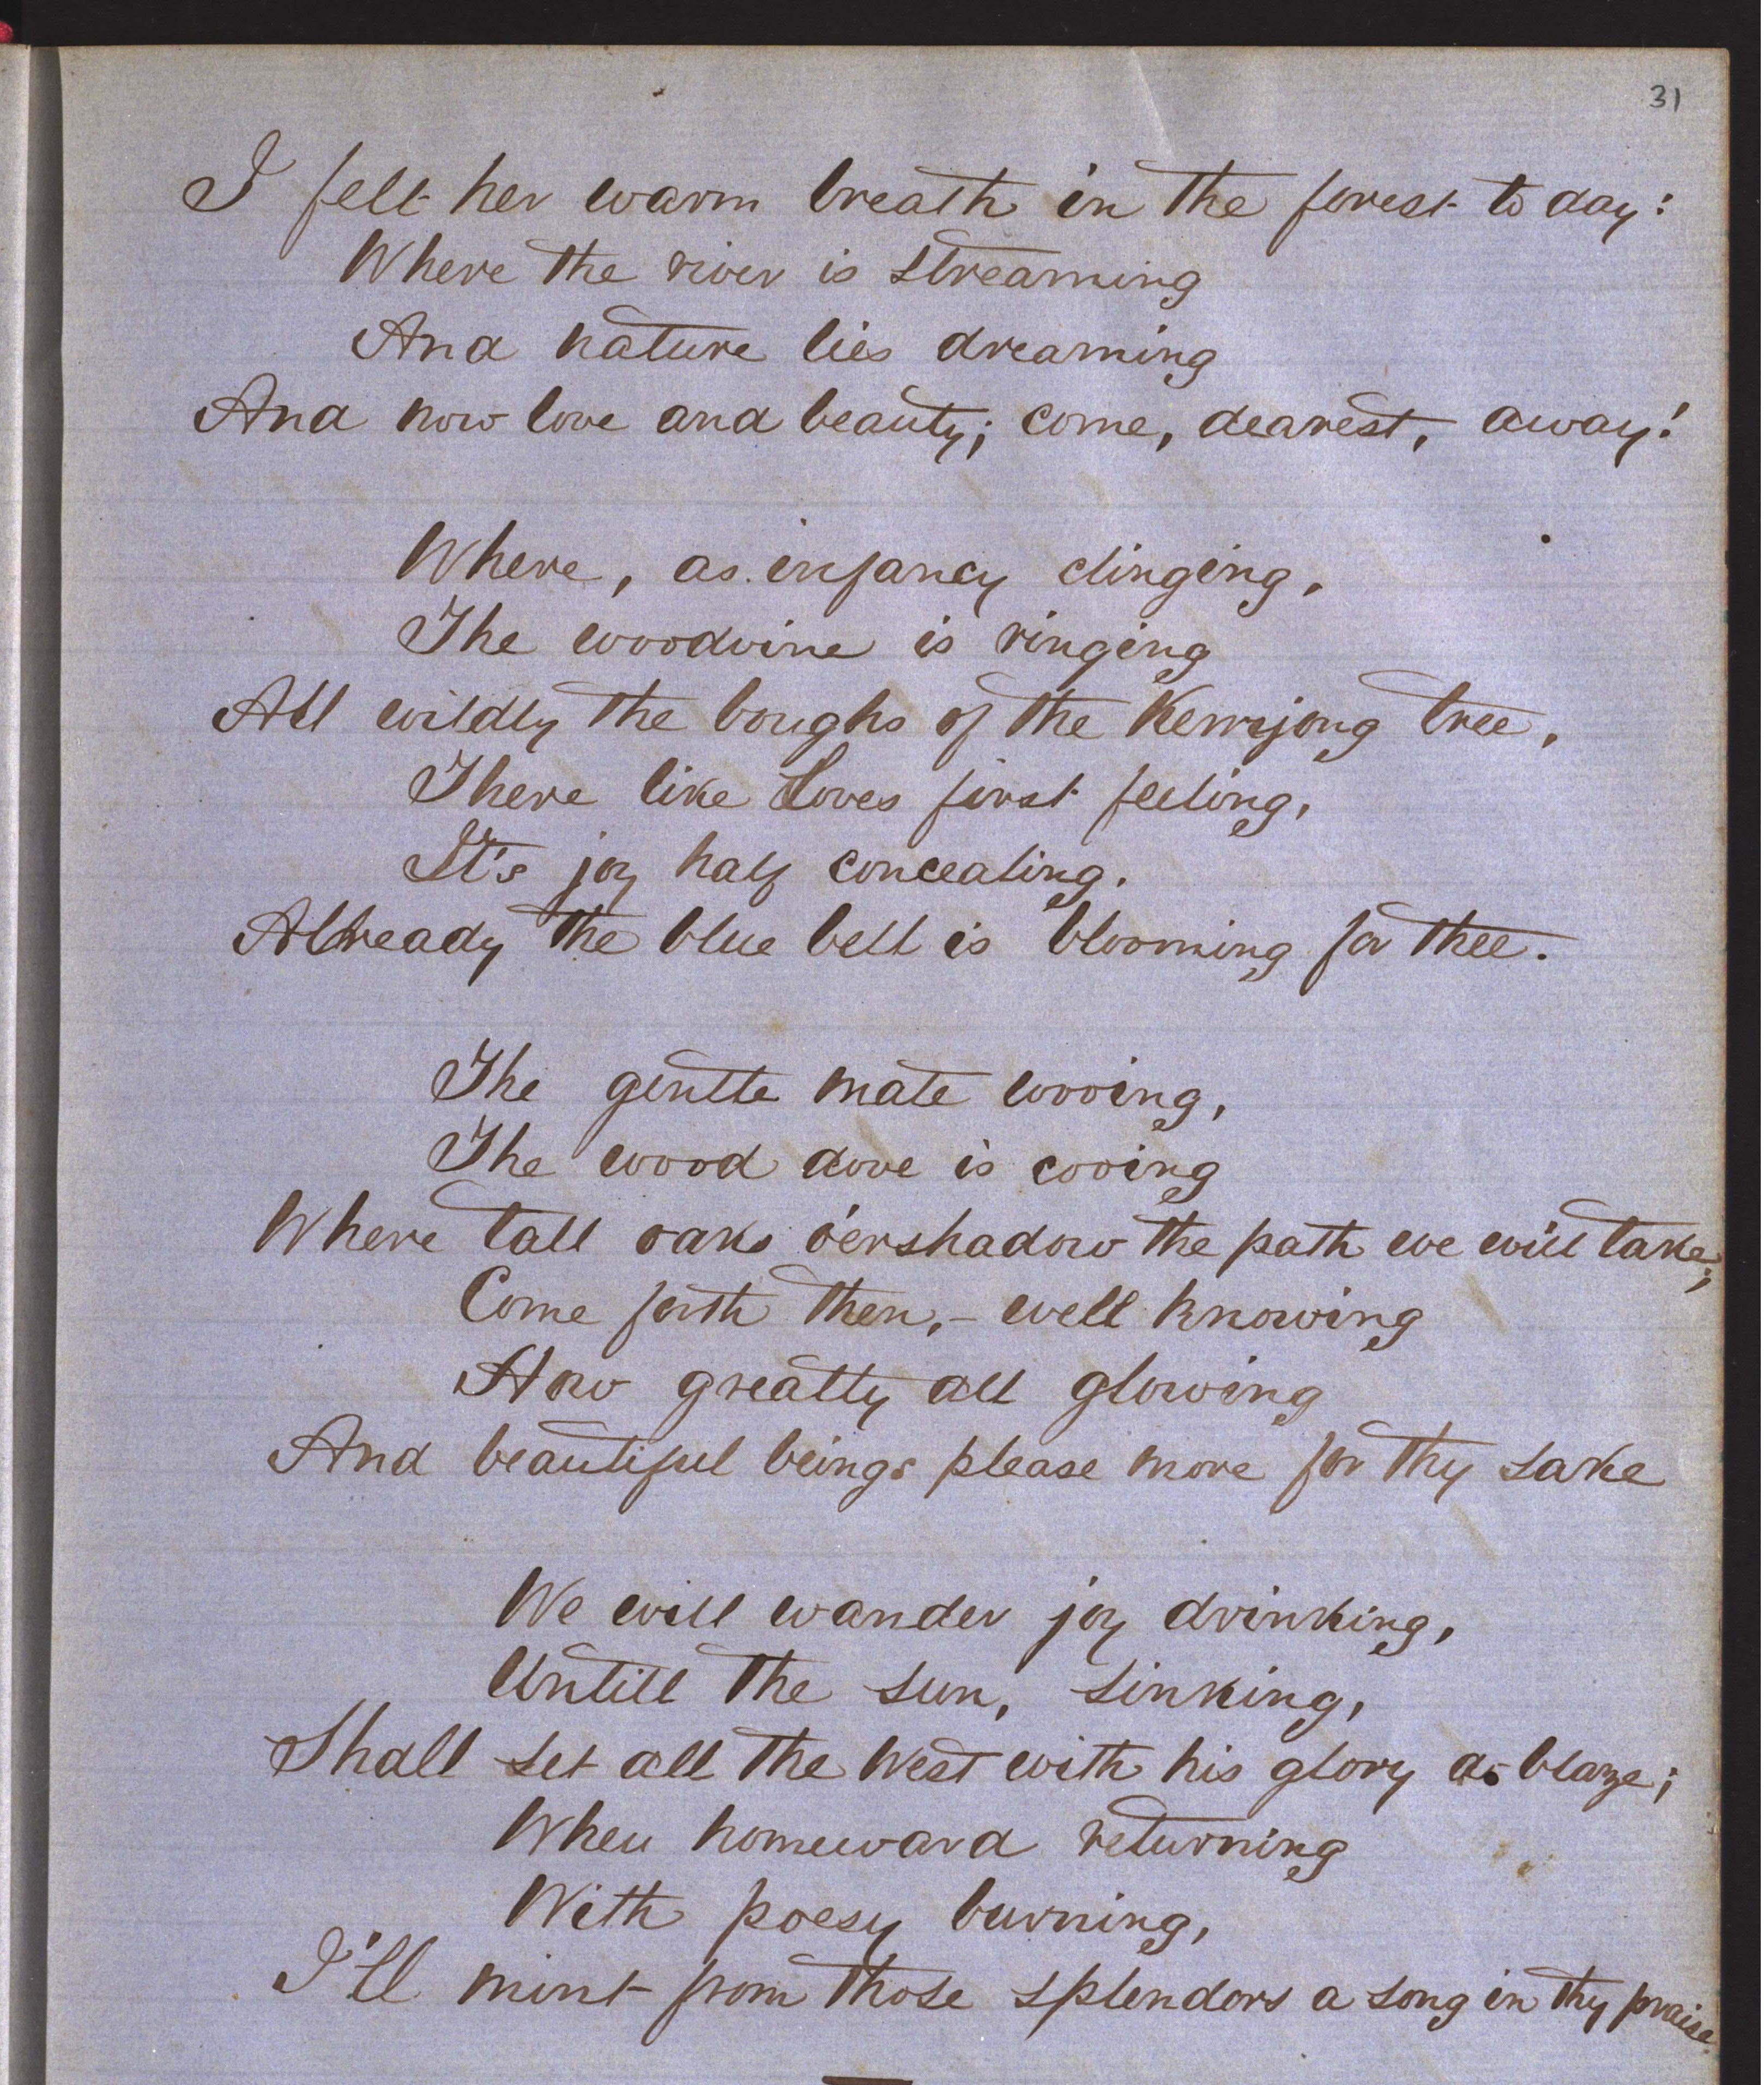 31
I felt her warm breath in the forest to day:
Where the river is streaming
And nature lies dreaming
And now love and beauty; come, dearest, away!
Where, as infancy clinging,
The woodvine is ringing
All wildly the boughs of the Kerrijong tree,
There like Loves first feeling,
It's joy half concealing.
Allready the blue bell is blooming for thee.
The gentle mate wooing,
The wood dove is cooing
Where tall oaks o'ershadow the path we will take;
Come forth then, – well knowing
How greatly all glowing
And beautiful beings please more for thy sake
We will wander joy drinking,
Untill the sun, sinking,
Shall set all the West with his glory a blaze;
When homeward returning
With poesy burning,
I'll mint from those splendors a song in thy praise.